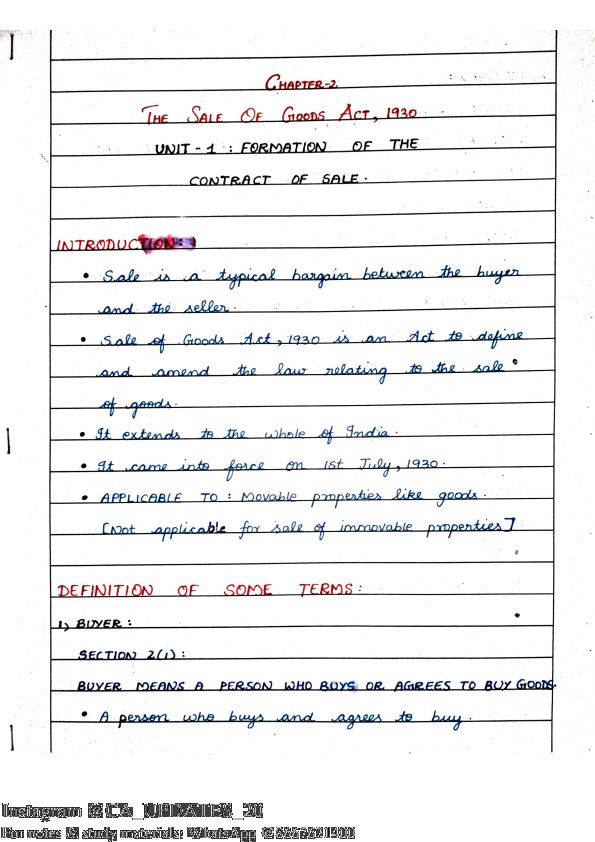 CHAPTER-2
THE SALE OF GOODS ACT, 1930
UNIT-1 : FORMATION OF THE
CONTRACT OF SALE.
INTRODUCTION:
• Sale is a typical bargain between the buyer
and the seller.
• Sale of Goods Act, 1930 is an Act to define
and amend the law relating to the sale
of goods.
• It extends to the whole of India.
• It came into force on 1st July, 1930.
• APPLICABLE TO : Movable properties like goods.
[Not applicable for sale of immovable properties]
DEFINITION OF SOME TERMS:
1) BUYER:
SECTION 2(1):
BUYER MEANS A PERSON WHO BUYS OR AGREES TO BUY GOODS.
• A person who buys and agrees to buy.
Instagram
For notes & study materials: WhatsApp